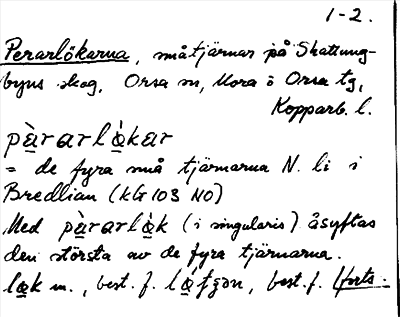 1-2.
Perarlökarna, småtjärnar på Skattung-
byns skog, Orsa sn, Mora o Orsa tg,
Kopparb. l.
pàrarlö̀kar
= de fyra små tjärnarna N. li i
Bredlian (kG 103 NO)
Med pàrarlö̀k (i singularis) åsyftas
den största av de fyra tjärnarna.
m., best. f. best. f. (forts.